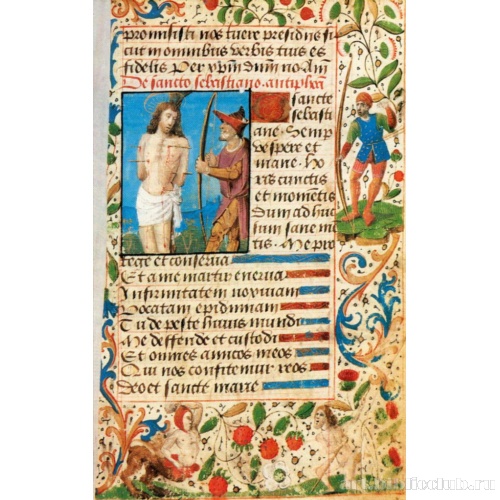 promisisti nos tuere presidiis si
cut in omnibus verbis tuis es
fidelis Per xpm dnm no Am
De sancto sebastiano antipha
O sancte
sebasti
ane Semp
vespere et
mane ho
ris cunctis
et momentis
Dum ad huc
sum sane me
tis Me pro
tege et conserva
Et a me martir enerva
Infirmitatem noxiam
Vocatam epidimiam
Tu de peste huius mundi
Me deffende et custodi
Et omnes amicos meos
Qui nos confitemur reos
Deo et sancte marie